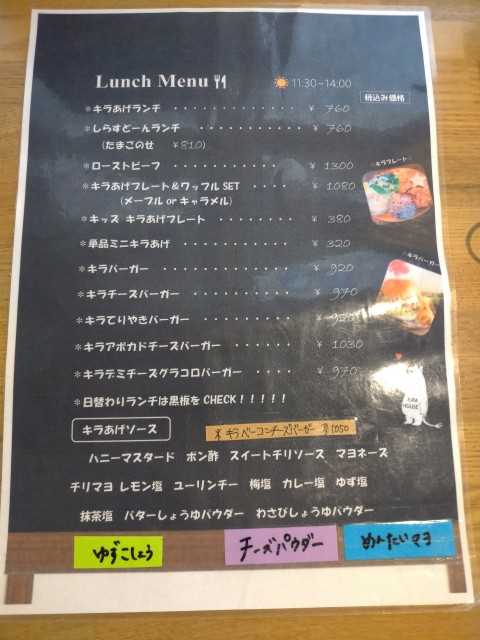 Lunch Menu
11:30~14:00
税込み価格
*キラあげランチ ・・・・・・・・・・・ ¥ 760
*しらすどーんランチ ・・・・・・・・・ ¥ 760
(たまごのせ ¥810)
*ローストビーフ ・・・・・・・・・・ ¥ 1300
*キラあげプレート&ワッフルSET ・・・・ ¥ 1080
(メープル or キャラメル)
-キラプレート-
*キッズ キラあげプレート ・・・・・・・ ¥ 380
*単品ミニキラあげ ・・・・・・・・・・ ¥ 320
-キラバーガー-
*キラバーガー ・・・・・・・・・・・・ ¥ 920
*キラチーズバーガー ・・・・・・・・・ ¥ 970
*キラてりやきバーガー ・・・・・・・・ ¥
*キラアボカドチーズバーガー ・・・・・ ¥ 1030
*キラデミチーズグラコロバーガー ・・・・ ¥ 970
KIRA HOUSE
*日替わりランチは黒板をCHECK!!!!!
キラあげソース
* キラベーコンチーズバーガー ¥1050
ハニーマスタード ポン酢 スイートチリソース マヨネーズ
チリマヨ レモン塩 ユーリンチー 梅塩 カレー塩 ゆず塩
抹茶塩 バターしょうゆパウダー わさびしょうゆパウダー
ゆずこしょう チーズパウダー めんたいマヨ